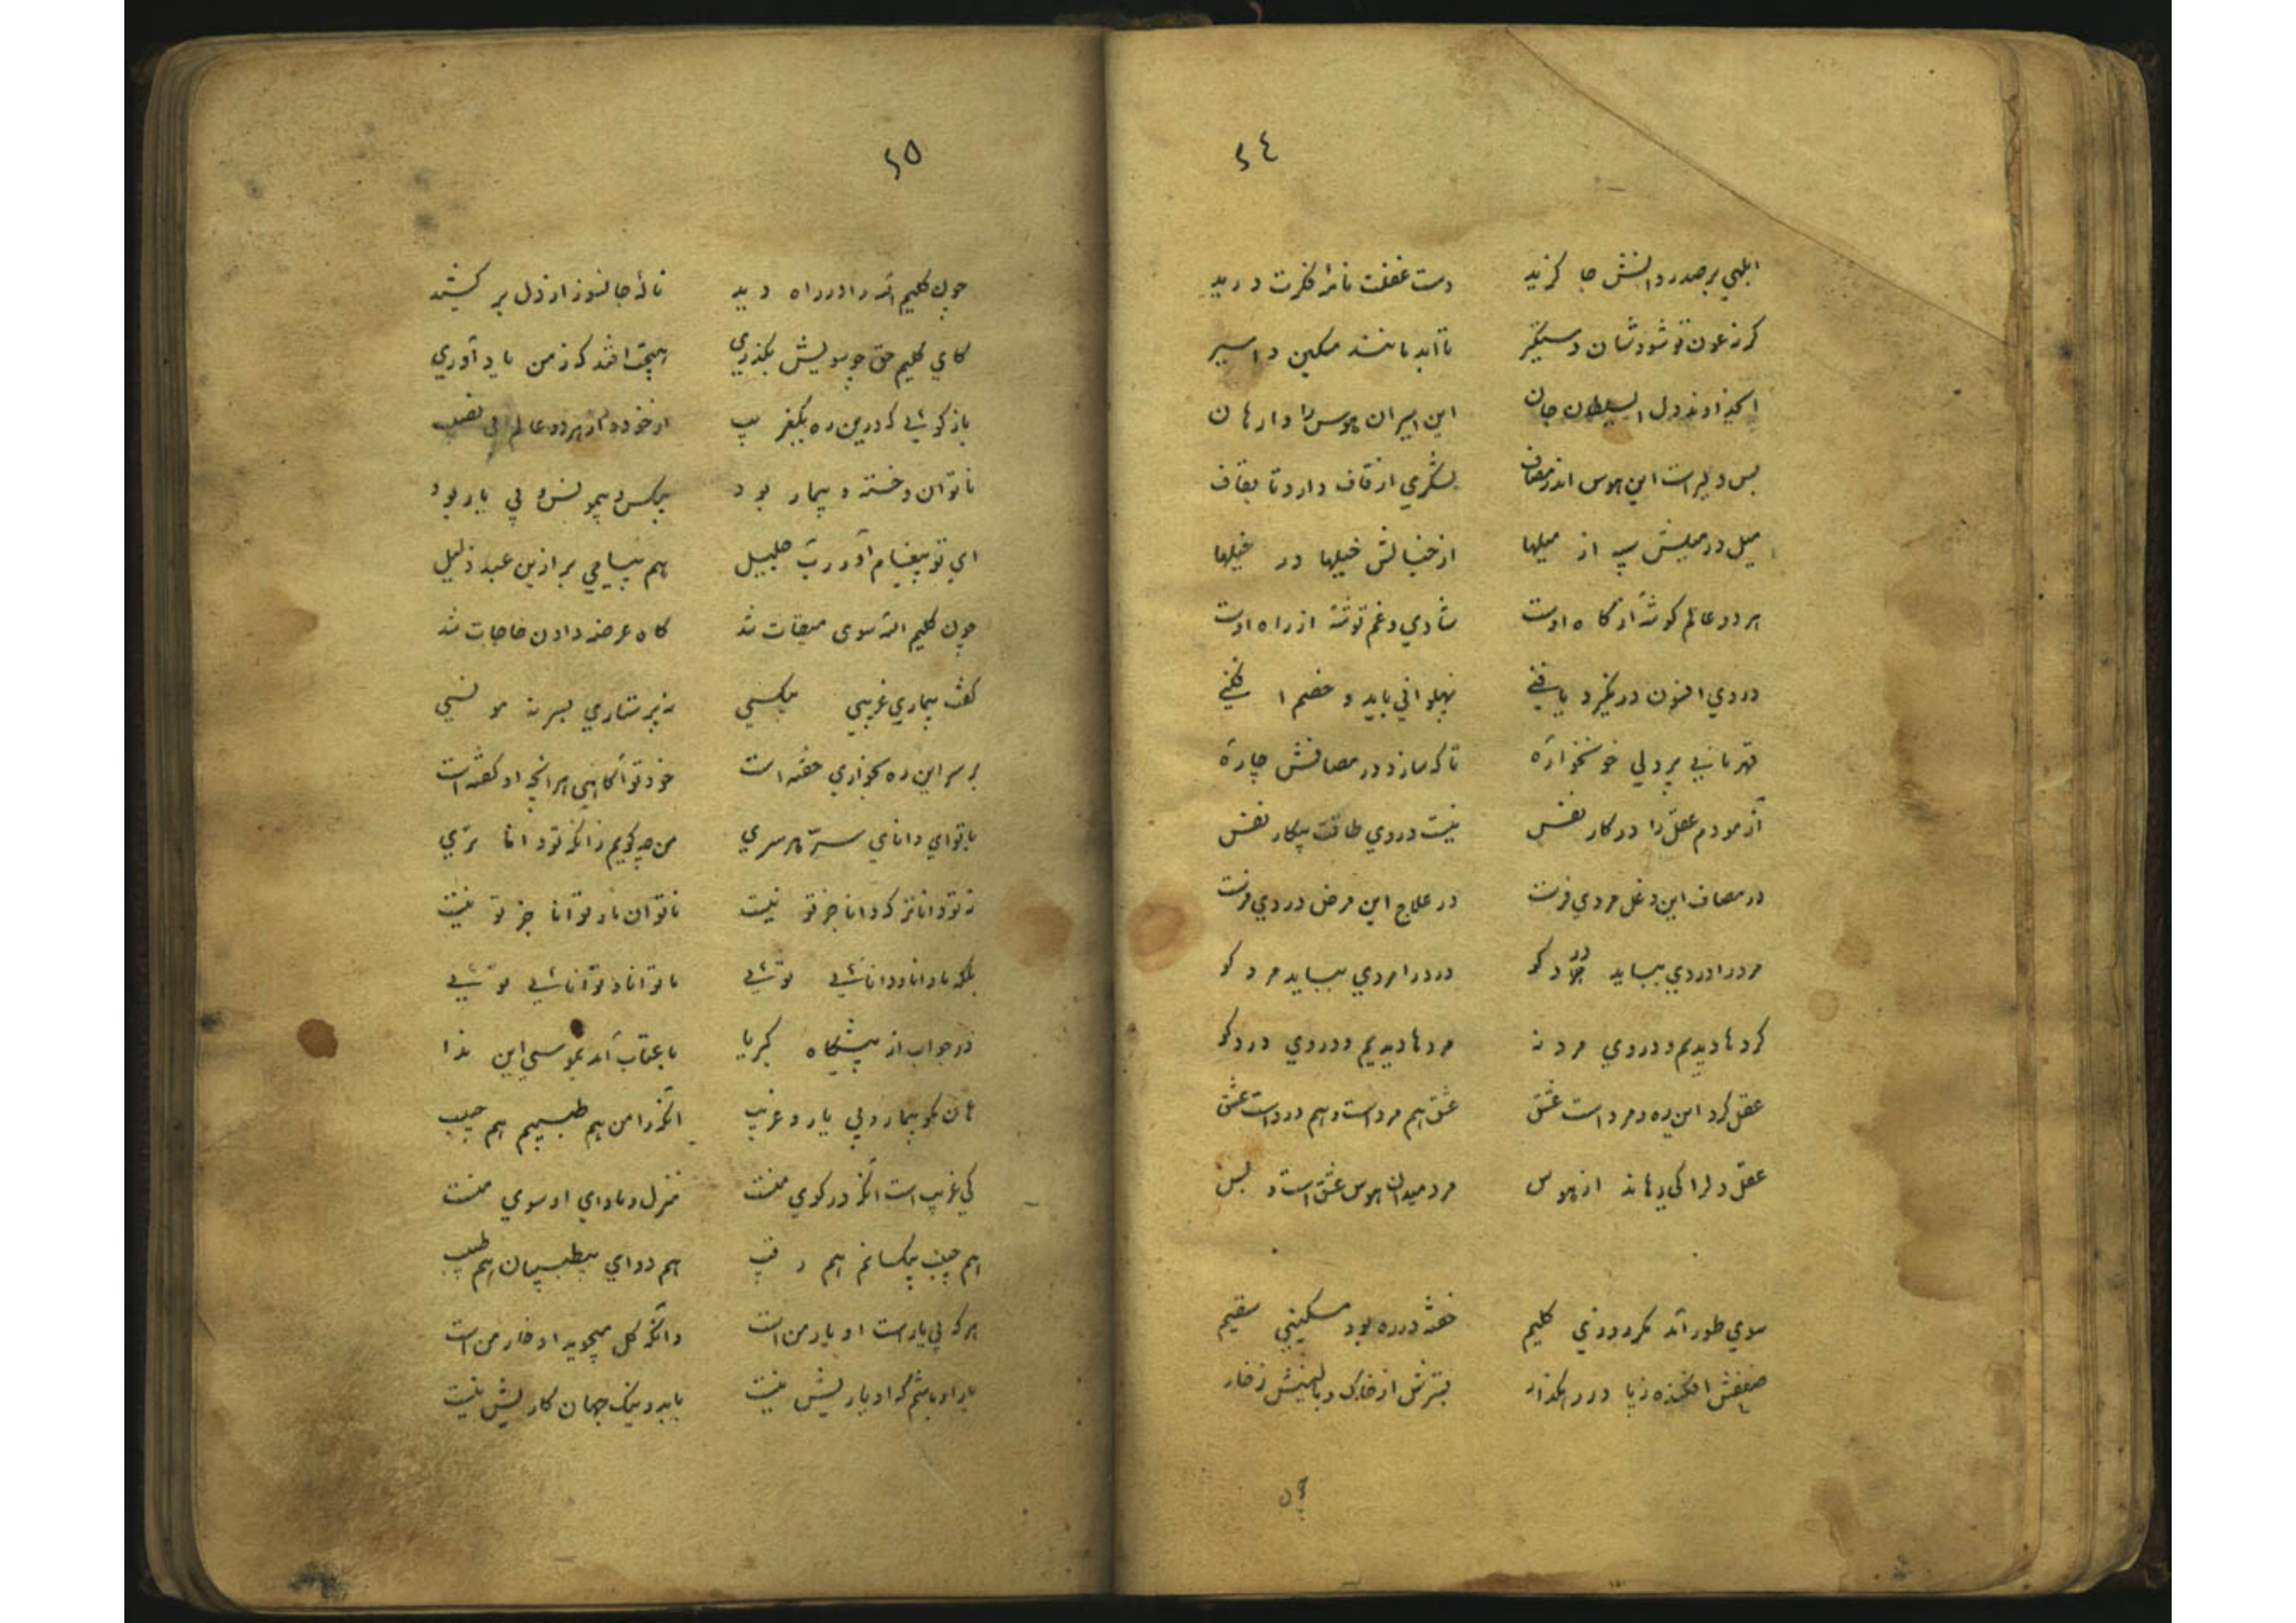 ٢٤
ابلهی بر صدر دانش جا گزید دست غفلت نامهٔ فکرت درید
گر نه عون تو شود شان دستگیر تا ابد مانند مسکین و اسیر
ای خداوند دل ای سلطان جان این اسیران هوس را وارهان
بس دلیر است این هوس اندر مصاف لشگری از قاف دارد تا بقاف
میل در میلش سپه از میلها از خیالش خیلها در خیلها
هر دو عالم گوشهٔ از گاه اوست شادی و غم توشهٔ از راه اوست
در وی افسون در نگیرد یا فنی پهلوانی باید و خصم افکنی
قهرمانی پر دلی خونخوارهٔ تا که سازد در مصافش چارهٔ
آزمودم عقل را در کار نفس نیست در وی طاقت پیکار نفس
در مصاف این دغل مردی فرست در علاج این مرض دردی فرست
مرد را دردی بباید درد کو درد را مردی بباید مرد کو
گردها دیدیم و در وی مرد نه مردها دیدیم و در وی درد کو
عقل گرد این ره و مرد است عشق عشق هم مرد است و هم درد است عشق
عقل دل را کی رهاند از هوس مرد میدان هوس عشق است و بس
سوی طور آمد مگر روزی کلیم خفته در ره بود مسکینی سقیم
ضعفش افکنده ز پا در رهگذار بسترش از خاک و بالینش ز خار
چون
٢٥
چون کلیم الله را در راه دید نالهٔ جانسوز از دل بر کشید
کای کلیم حق چو سویش بگذری هیچت افتد کز من یاد آوری
باز گوئی که درین ره یکغریب از خود و از هر دو عالم بی نصیب
ناتوان و خسته و بیمار بود بیکس و بیمونس و بی یار بود
ای تو پیغام آور رب جلیل هم پیامی بر ازین عبد ذلیل
چون کلیم الله سوی میقات شد گاه عرضه دادن حاجات شد
گفت بیماری غریبی بیکسی نه پرستاری بسر نه مونسی
بر سر این ره بخواری خفته است خود تو آگاهی هر آنچه او گفته است
با تو ای دانای سر هر سری من چه گویم زانکه تو داناتری
نه تو داناتر که دانا جز تو نیست ناتوان ما و توانا جز تو نیست
بلکه نادانا و دانا شی توئی ناتوانا و توانا شی توئی
در جواب از پیشگاه کبریا با عتاب آمد بموسی این ندا
هان مگو بیمار و بی یار و غریب آنکه را من هم طبیبم هم حبیب
کی غریب است آنکه در کوی منست منزل و ماوای او سوی منست
هم حبیب بیکسانم هم رقیب هم دوای بیطبیبان هم طبیب
هر که بی یار است او یار من است وانکه گل میجوید او خار من است
یار او باشم که او یاریش نیست با بد و نیک جهان کاریش نیست